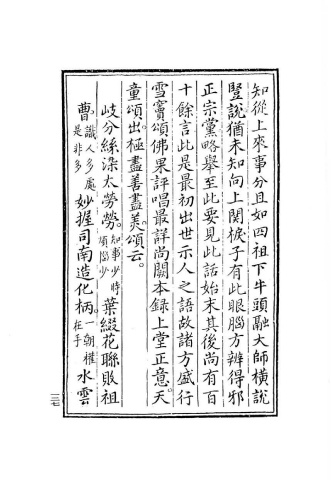 知從上來事分且如四祖下牛頭融大師橫說
豎說猶未知向上関棙子有此眼腦方辨得邪
正宗黨略舉至此要見此話始末其後尚有百
十餘言此是最初出世示人之語故諸方盛行
雪竇頌佛果評唱最詳尚闕本録上堂正意天
童頌出極盡善盡美頌云。
岐分絲染太勞勞。知事少時煩惱少葉綴花聯敗祖
曹。識人多處是非多妙握司南造化柄。一朝權在手水雲
三七